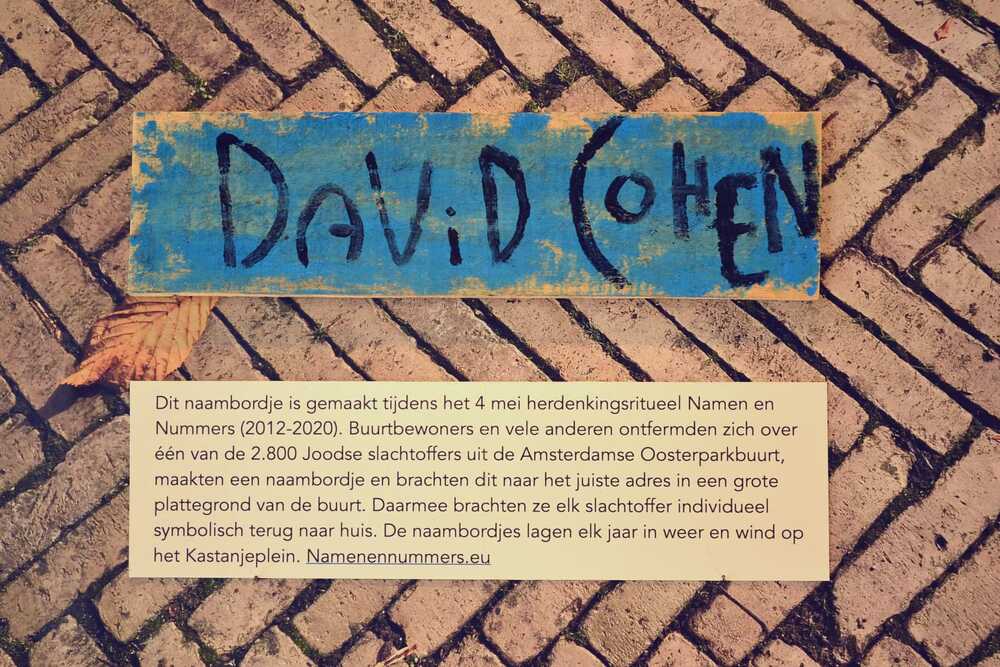 DAViD COHEN
Dit naambordje is gemaakt tijdens het 4 mei herdenkingsritueel Namen en
Nummers (2012-2020). Buurtbewoners en vele anderen ontfermden zich over
één van de 2.800 Joodse slachtoffers uit de Amsterdamse Oosterparkbuurt,
maakten een naambordje en brachten dit naar het juiste adres in een grote
plattegrond van de buurt. Daarmee brachten ze elk slachtoffer individueel
symbolisch terug naar huis. De naambordjes lagen elk jaar in weer en wind op
het Kastanjeplein. Namenennummers.eu